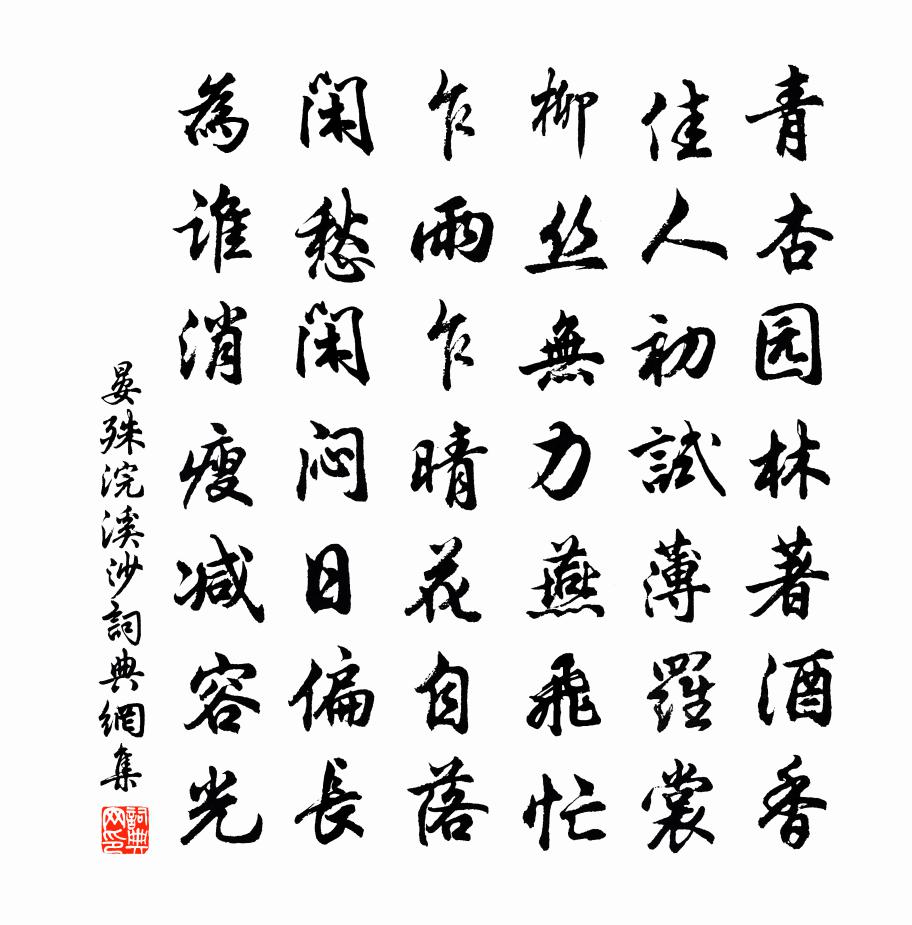 青杏园林著酒香
佳人初試薄羅裳
柳丝無力燕飛忙
乍雨乍晴花自落
闲愁闲闷日偏長
為谁消瘦减容光
晏殊浣溪沙詞典網集
詞典网印